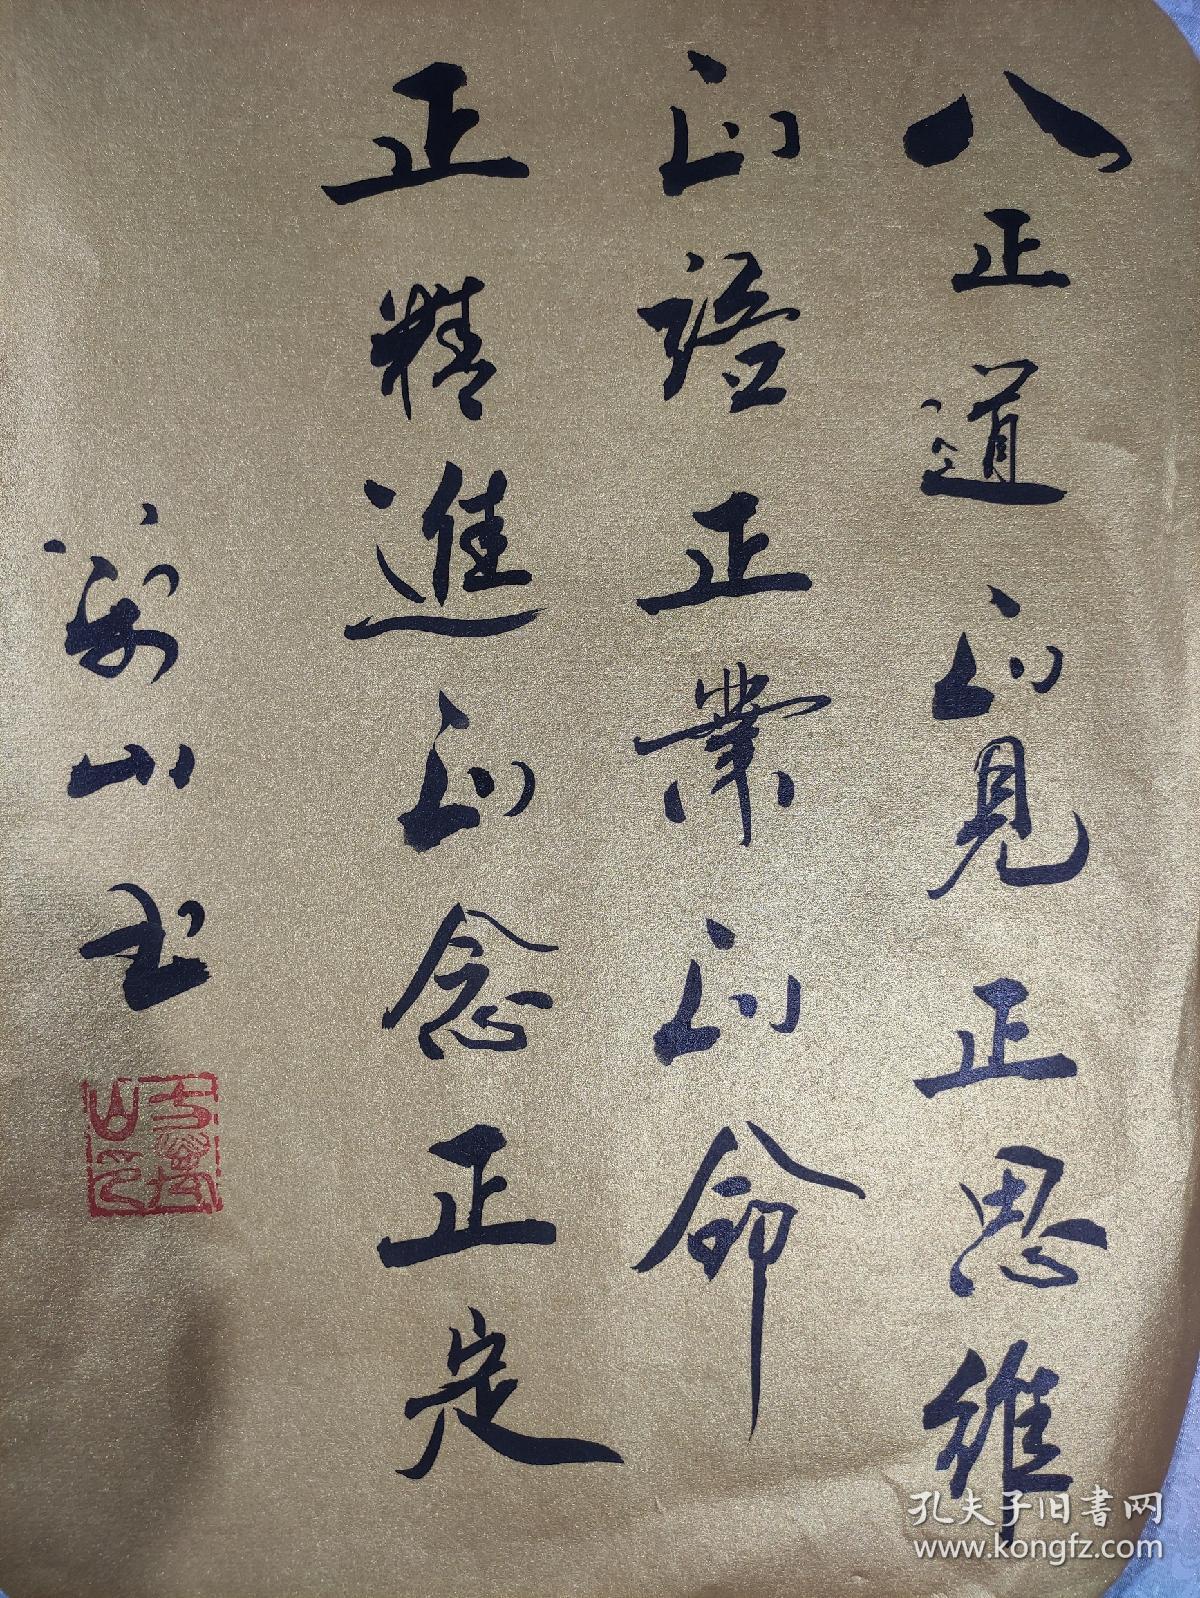 八正道正見正思維
正語正業正命
正精進正念正定
萬山书
孔夫子旧書网
www.kongfz.com